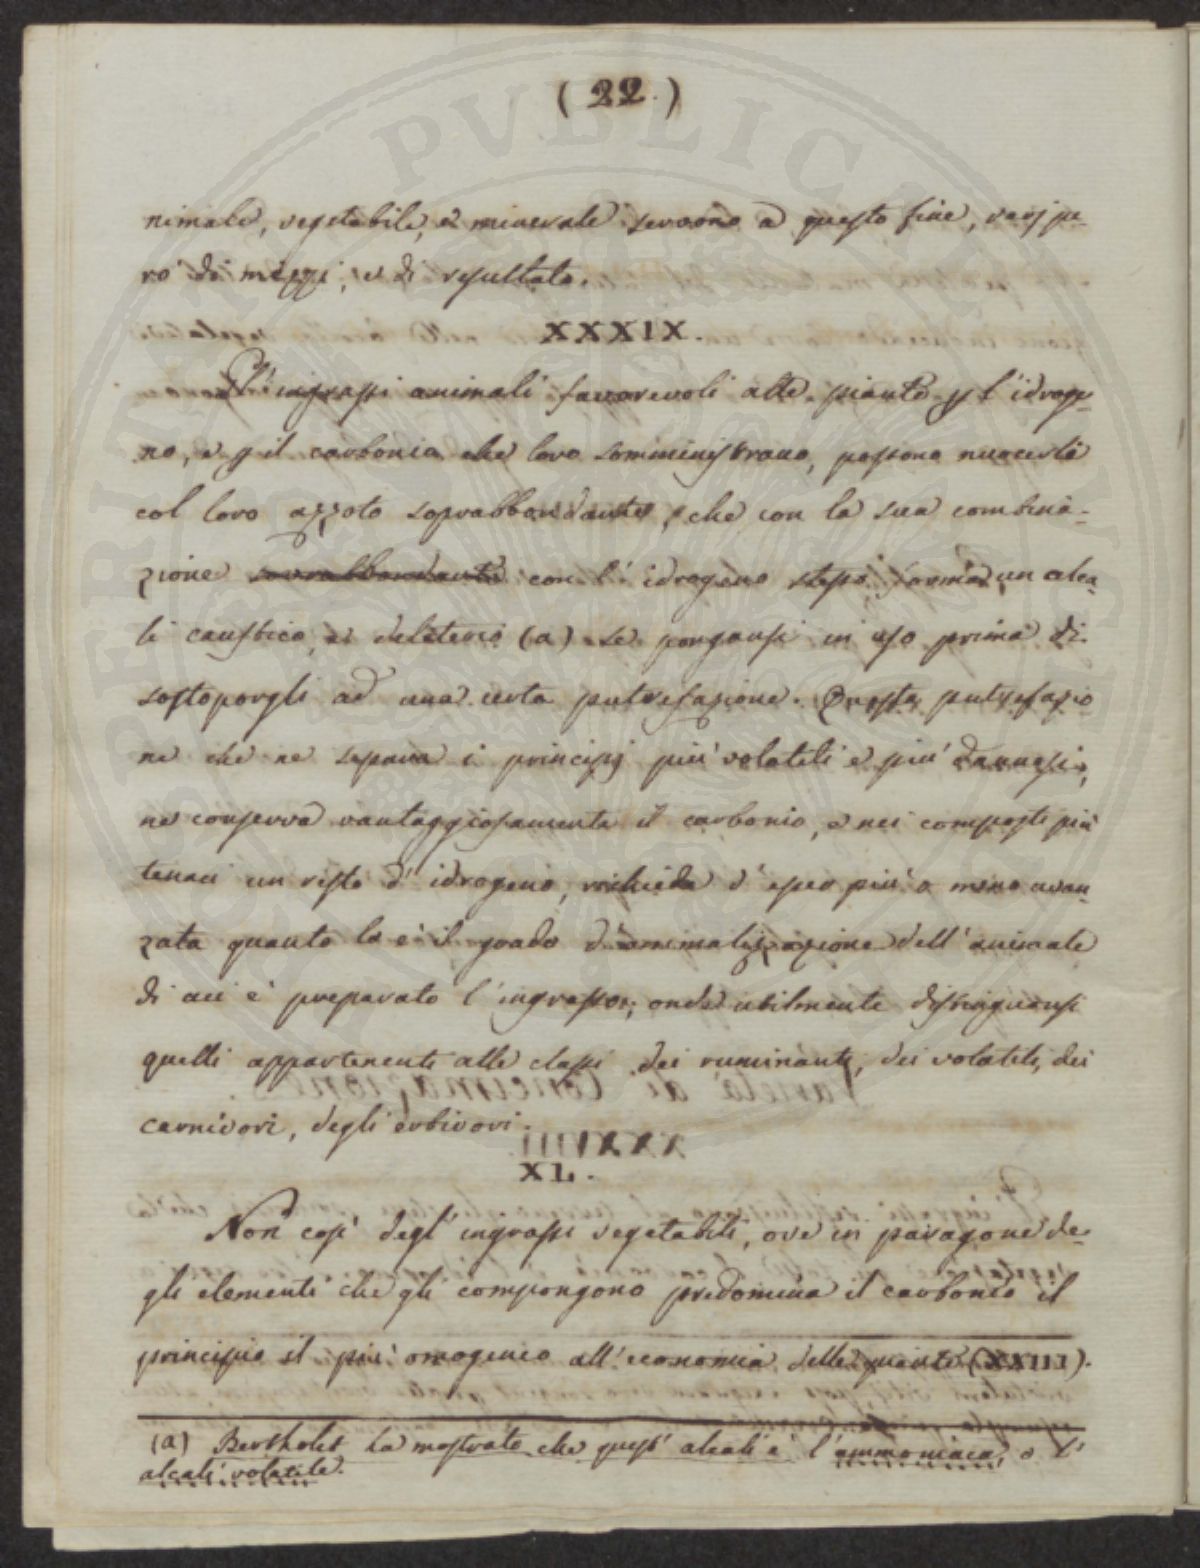 ( 22. )
nimale, vegetabile, e minerale servono a questo fine, varj pe-
rò di mezzi, e di resultato.
XXXIX.
Gl'ingrassi animali favorevoli alle piante p l'idroge-
no, e p il carbonio che loro somministrano, possono nuocerli
col loro azzoto soprabbondante, che con la sua combina-
zione sovrabbondante con l'idrogeno stesso forma un alca-
li caustico, e deleterio (a) se pongansi in uso prima di
sottoporgli ad una certa putrefazione. Questa putrefazio
ne che ne separa i principj più volatili e più dannosi,
ne conserva vantaggiosamente il carbonio, e nei composti più
tenaci un resto d'idrogeno, richiede d'esser più o meno avan-
zata quanto lo è il grado d'animalizzazione dell'animale
di cui è preparato l'ingrasso; onde utilmente distinguansi
quelli appartenenti alle classi dei ruminanti, dei volatili, dei
carnivori, degli erbivori.
XL.
Non così degl'ingrassi vegetabili, ove in paragone de-
gli elementi che gli compongono predomina il carbonio il
principio il più omogenio all'economia delle piante (XXIII).
(a) Berthollet ha mostrato che quest'alcali è l'ammoniaca, o l'
alcali volatile.
PERINT PVBLICA